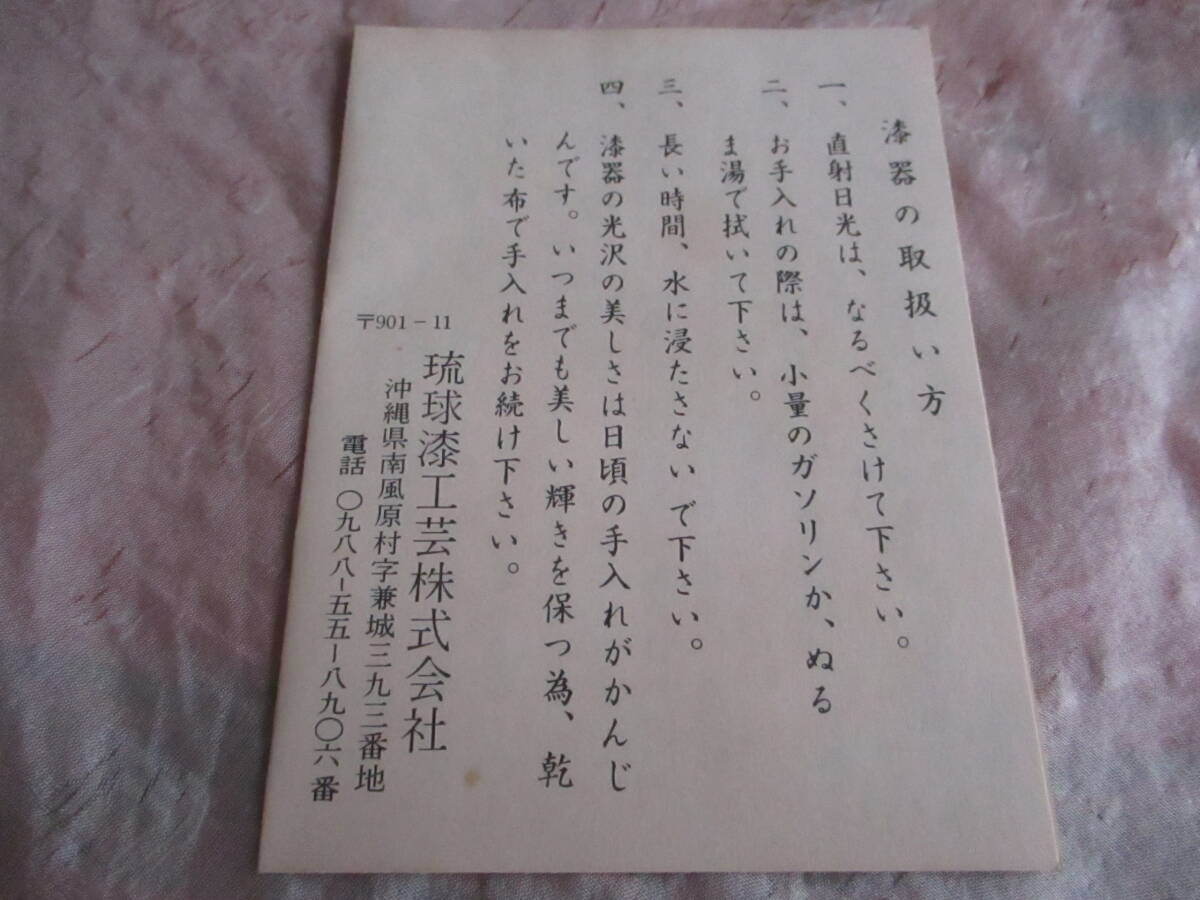 漆器の取扱い方
一、直射日光は、なるべくさけて下さい。
二、お手入れの際は、小量のガソリンか、ぬる
ま湯で拭いて下さい。
三、長い時間、水に浸たさないで下さい。
四、漆器の光沢の美しさは日頃の手入れがかんじ
んです。いつまでも美しい輝きを保つ為、乾
いた布で手入れをお続け下さい。
〒901-11
琉球漆工芸株式会社
沖縄県南風原村字兼城三九三番地
電話 〇九八八-五五-八九〇六番